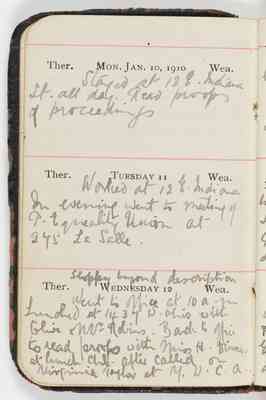 Ther. MON. JAN. 10, 1910 Wea.
Stayed at 12 E. Indiana
St. all day. Read proofs
of proceedings
Ther. TUESDAY 11 Wea.
Worked at 12 E. Indiana
In evening went to meeting of
P. Equality Union at
275 La Salle.
Ther. WEDNESDAY 12 Wea.
Sloppy beyond description
Went to office at 10 a.m.
Lunched at 1434 W. Ohio with
Olive Mrs. Robins. Back to office
to read proofs with Miss H.
at lunch club. After called on
Virginia Taylor at Y. W. C. A.